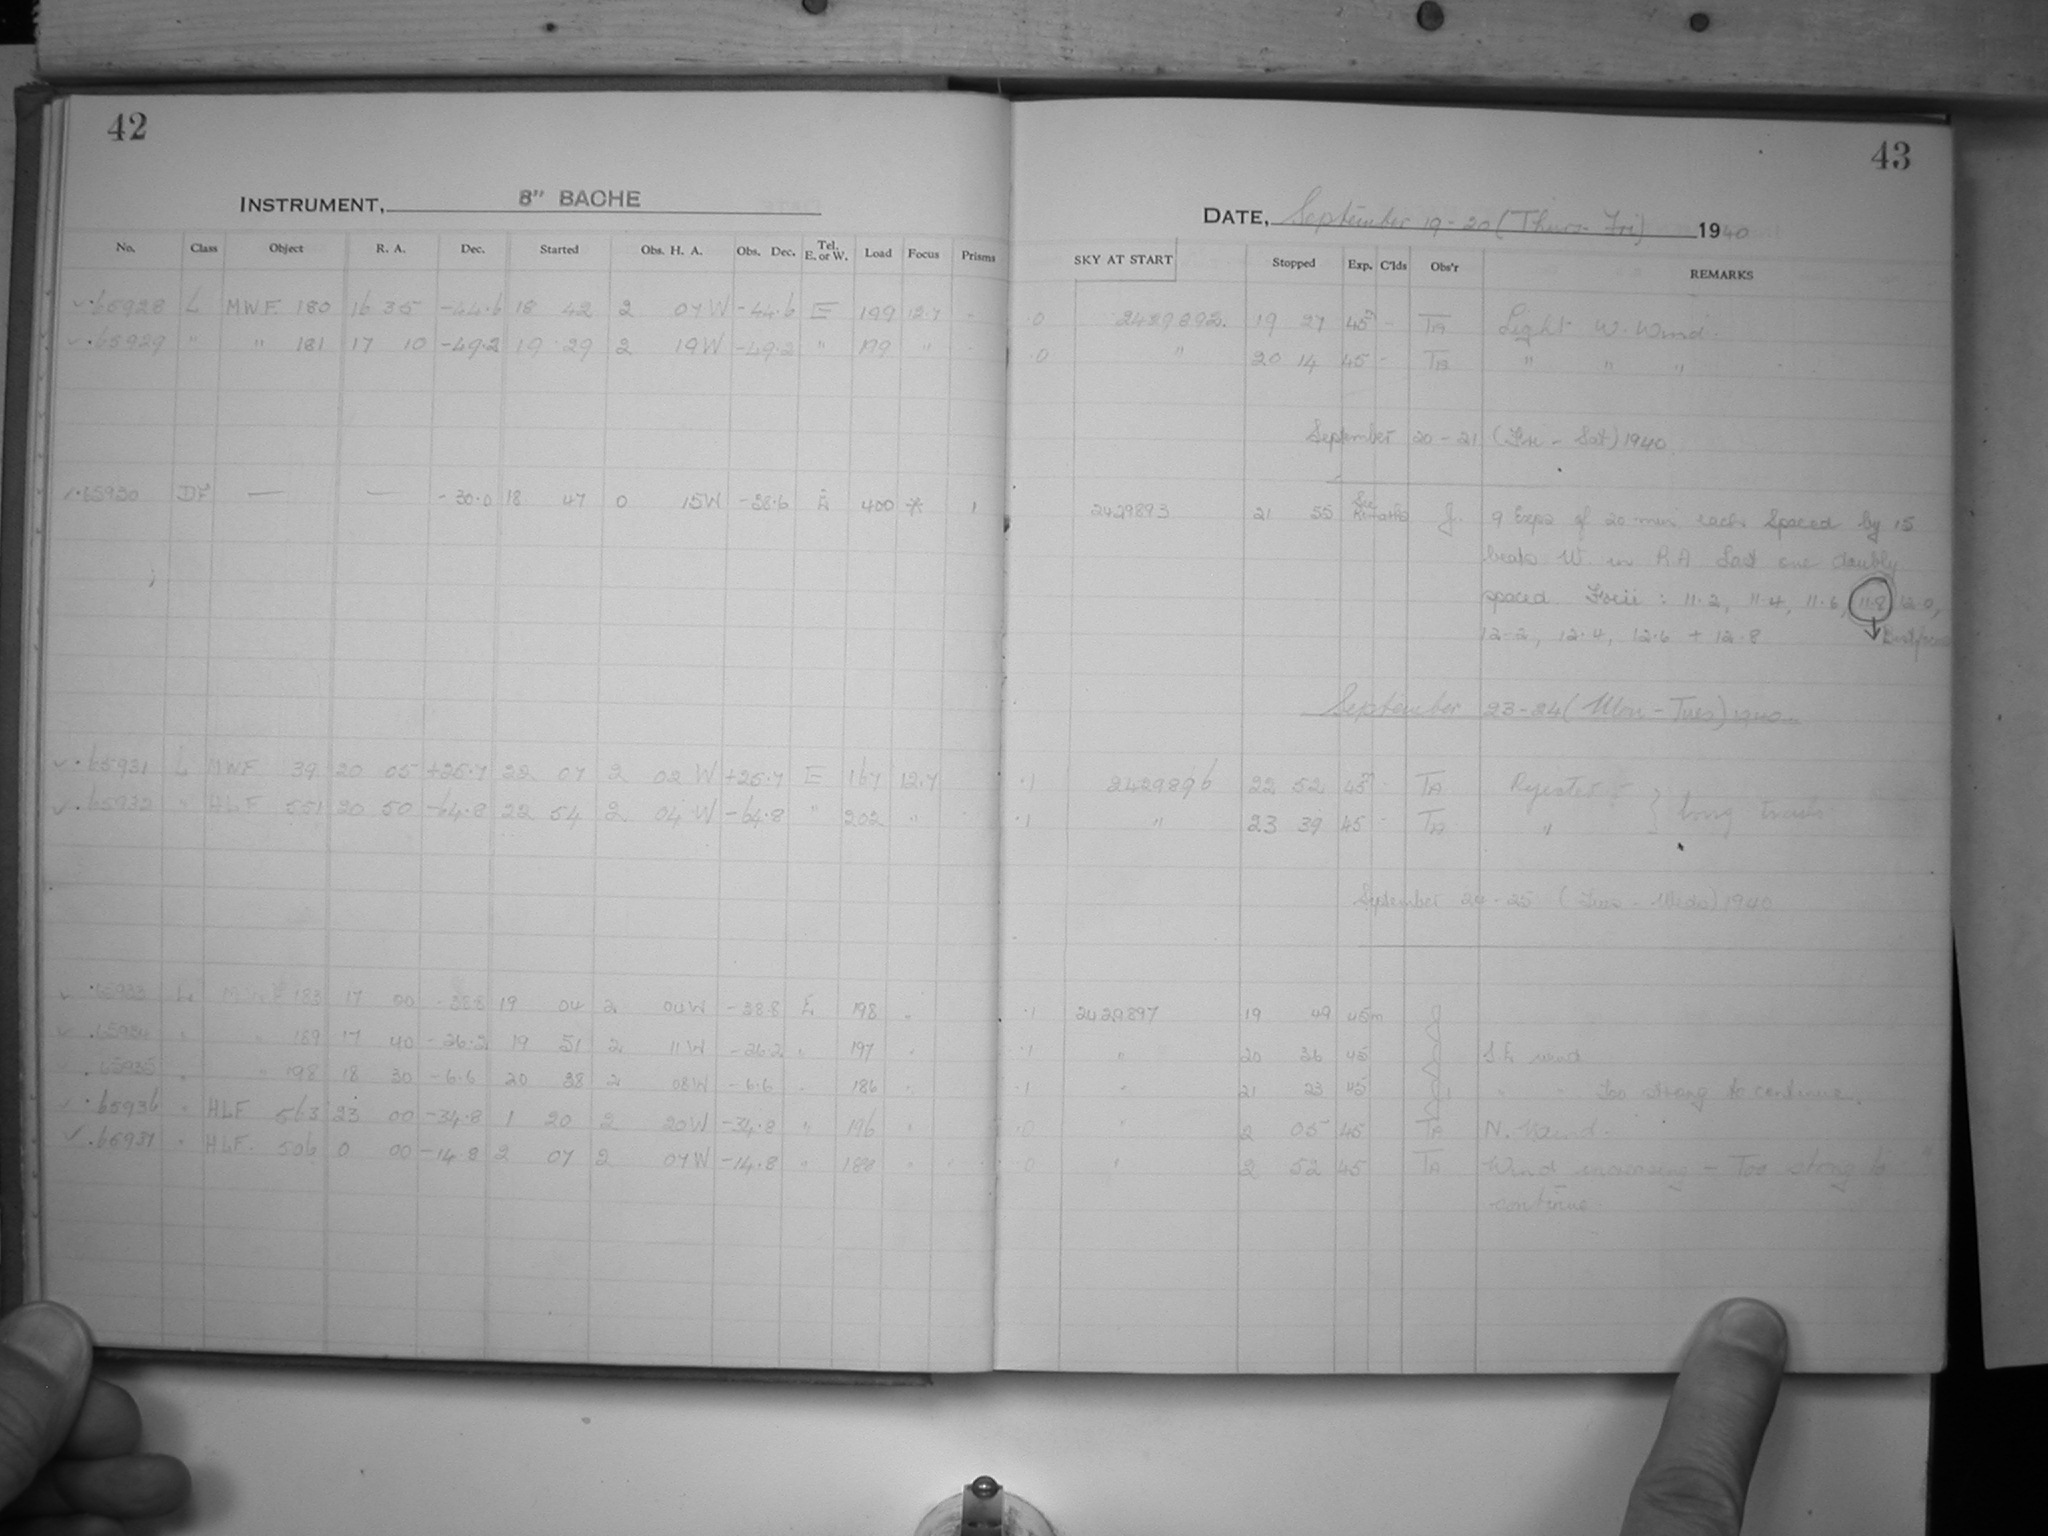 42
INSTRUMENT, 8" BACHE
No. Class Object R. A. Dec. Started Obs. H. A. Obs. Dec. Tel. E. or W. Load Focus Prisms
65928 L MWF 180 16 35 -44.6 18 42 2 07W -44.6 E 199 12.7
65929 " " 181 17 10 -49.2 19 29 2 19W -49.2 " 199 "
65930 DF — — -30.0 18 47 0 15W -38.6 E 400 * 1
65931 L MWF 39 20 05 +25.7 22 07 2 02 W +25.7 E 167 12.7
65932 " HLF 551 20 50 -64.8 22 54 2 04 W -64.8 " 202 "
65933 L 183 17 00 -38.8 19 04 2 04W -38.8 E 198 "
65934 " " 189 17 40 -26.2 19 51 2 11W -26.2 " 197 "
65935 " " 198 18 30 -6.6 20 38 2 08W -6.6 " 186 "
65936 " HLF 563 23 00 -34.8 1 20 2 20W -34.8 " 196 "
65937 " HLF. 506 0 00 -14.8 2 07 2 07W -14.8 "
43
DATE, September 19-20 (Thurs-Fri) 1940
SKY AT START Stopped Exp. C'lds Obs'r REMARKS
.0 2429892. 19 27 45m - TA Light W. Wind.
.0 " 20 14 45 - TA " " "
September 20-21 (Fri - Sat) 1940
2429893 21 55 See Remarks J. 9 Exps of 20 min. each. Spaced by 15
beats W in R.A. Last one doubly
spaced. Focii : 11.2, 11.4, 11.6, 11.8, 12.0,
12.2, 12.4, 12.6 + 12.8 Best focus
September 23-24 (Mon-Tues) 1940
.1 2429896 22 52 45m - TA Rejected } long trails
.1 " 23 39 45 - TA "
September 24-25 (Tues - Weds) 1940
.1 2429897 19 49 45m J
.1 " 20 36 45 J S E wind
.1 " 21 23 45 J " " Too strong to continue.
.0 " 2 05 45 TA N. Wind.
.0 " 2 52 45 TA Wind increasing - Too strong to
continue.